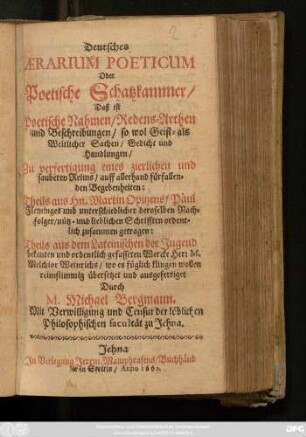 Deutsches
ÆRARIUM POETICUM
Oder
Poetische Schatzkammer/
Daß ist
Poetische Nahmen/ Redens-Arthen
und Beschreibungen/ so wol Geist- als
Weltlicher Sachen/ Gedicht und
Handlungen/
Zu verfertigung eines zierlichen und
sauberen Reims/ auff allerhand fürfallen-
den Begebenheiten:
Theils aus Hn. Martin Opitzens/ Paul
Flemmings und unterschiedlicher deroselben Nach-
folger/ und lieblichen Schrifften ordent-
lich zusammen getragen:
Theils aus dem Lateinischen der Jugend
bekanten und ordentlich gefasseten Wercke Herr M.
Melchior Weinrichs/ wo es füglich klingen wollen
reimstimmig übersetzet und ausgefertiget
Durch
M. Michael Bergmann.
Mit Verwilligung und Censur der löblichen
Philosophischen facultät zu Jehna.
Jehna
In Verlegung Jerem. Mamphrasius/ Buchhänd
ler in Stettin/ Anno